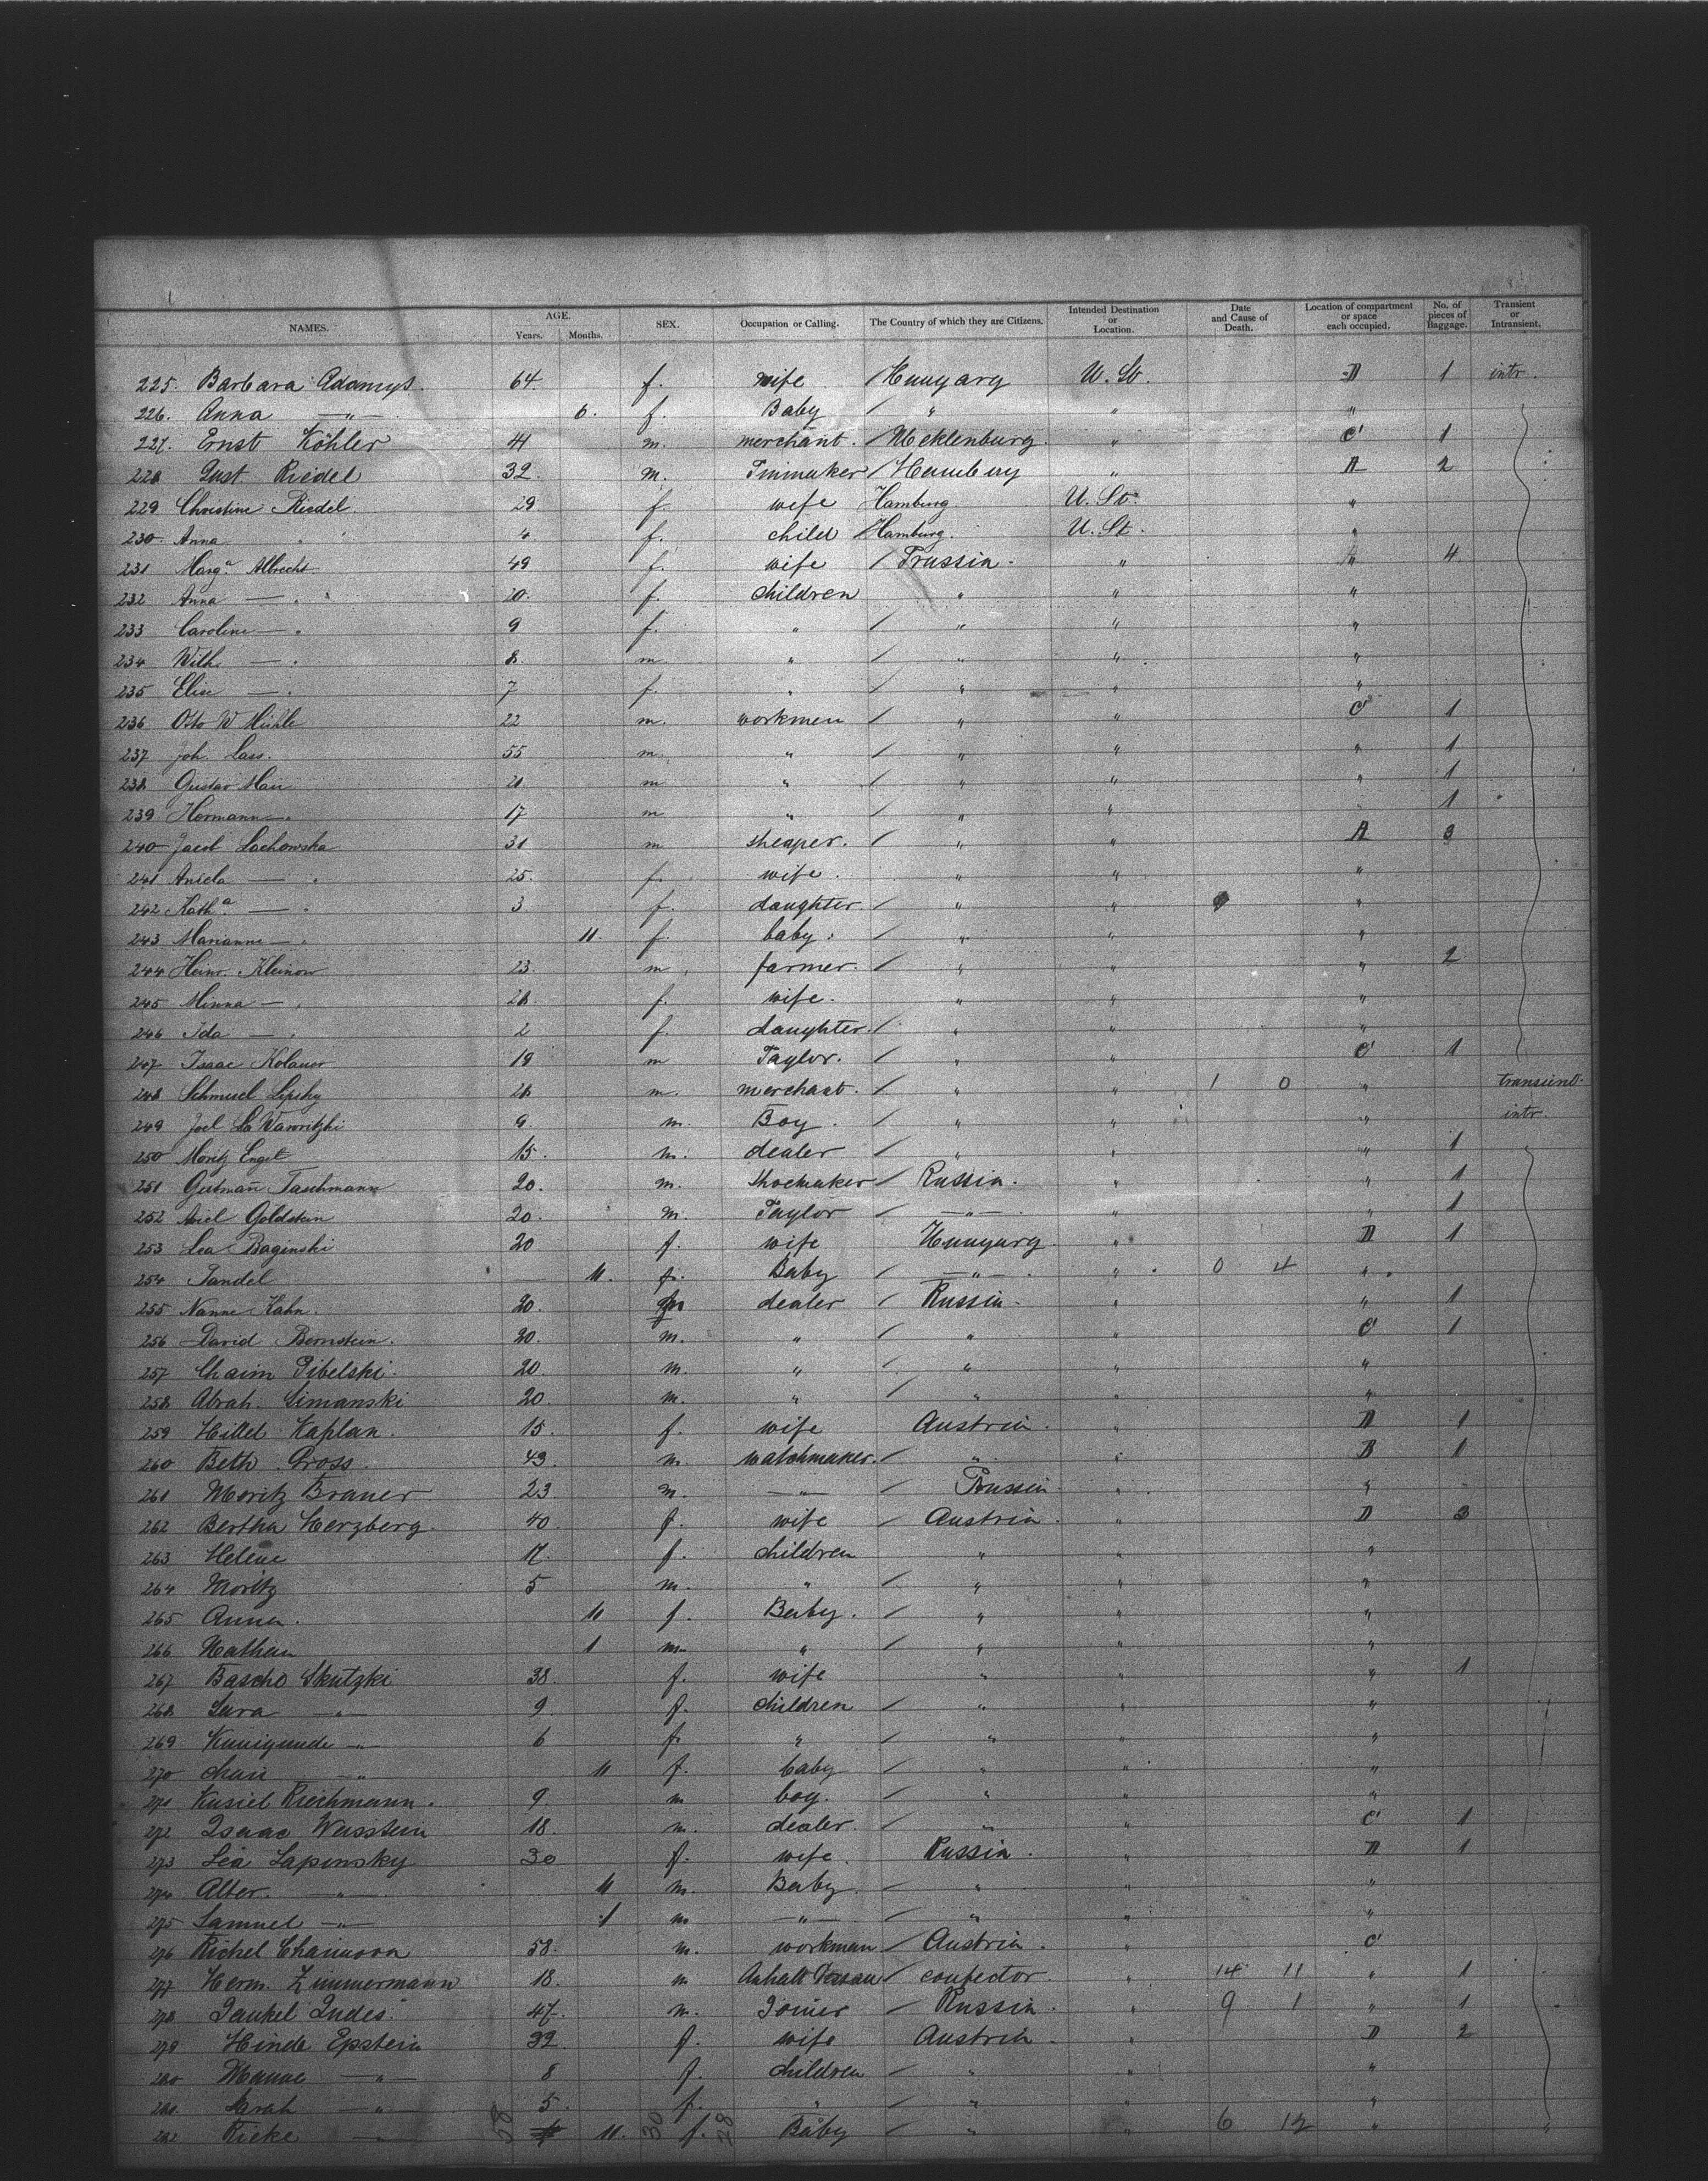 NAMES. AGE. Years. Months. SEX. Occupation or Calling. The Country of which they are Citizens. Intended Destination or Location. Date and Cause of Death. Location of compartment or space each occupied. No. of pieces of Baggage. Transient or Intransient.
225. Barbara Adamys. 64. f. wife / Hungary U. St. D 1 intr.
226. Anna —"— 6. f. Baby / " " "
227. Ernst Köhler 41 m. merchant. / Mecklenburg. " C 1
228 Gust Riedel 32. m. / Hamburg " A 2
229 Christine Riedel. 29 f wife Hamburg. U. St. "
230. Anna " 4. f. child Hamburg. U. St. "
231 Marg.a Albrecht. 49 f. wife / Prussia. " " 4
232 Anna — " 20. f. children " " "
233 Caroline — " 9 f. " / " " "
234 Wilh. — " 8. m " / " " "
235 Elise — " 7 f. " / " " "
236 Otto W Mühle 22 m. workmen / " " C 1
237 Joh. Lass. 55 m. " / " " " 1
238 Gustav Mau 21. m " / " " " 1
239 Hermann — " 17 m " / " " " 1
240 Jacob Lochowska 31 m sheaper. / " " A 3
241 Aniela — " 25. f. wife. " " "
242 Kath.a — " 3 f. daughter. / " " "
243 Marianne — " 11. f. baby. / " " "
244 Heinr. Kleinow 23. m. farmer. / " " " 2
245 Minna — " 28. f. wife. " " "
246 Ida — " 2 f. daughter. / " " "
247 Isaac Kolauer 19 m Taylor. / " " C 1
248 Schmuel Lipsky 28 m. merchant. / " " 1 0 " transient.
249 Joel 9. m. Boy. / " " " intr
250 Moritz Engel 15. m. dealer / " " " 1
251 Gutmañ Taschmann 20. m. Shoemaker / Russia. " " 1
252 Goldstein 20. m. Taylor / —"— " " 1
253 Lea Baginski 20 f. wife Hungary. " D 1
254 Jandel 11. f. Baby / —"— " 0 4 "
255 Nanne Kahn. 20. f dealer / Russia. " " 1
256 David Bernstein. 20. m. " / " " C 1
257 Chaim Pibelski. 20. m. " / " " "
258 Abrah. Simanski 20. m. " / " " "
259 Hillel Kaplan. 15. f. wife Austria. " D 1
260 Beth Gross. 43. m. watchmaker. / " " B 1
261 Moritz Brauer 23. m. —"— / Prussia " "
262 Bertha Herzberg. 40. f. wife / Austria. " D 3
263 Helene 17. f. children " " "
264 Moritz 5 m. " / " " "
265 Anna. 10 f. Baby. / " " "
266 Nathan 1 m. " / " " "
267 Bascho Skutzki 38. f. wife " " " 1
268 Sara —"— 9. f. children / " " "
269 Kunigunde —"— 6 f. " / " " "
270 —"— 11 f. baby / " " "
271 Kusiel Riechmann. 9 m boy. / " " "
272 Isaac Wasstein 18. m. dealer. / " " C 1
273 Lea Lapinsky 30 f. wife. Russia. " D 1
274 Alter. —"— 11 m. Baby. / " " "
275 Samuel —"— 1 m —"— / " " "
276 Richel Chaimova 58. m. workman. / Austria. " C
277 Herm. Zimmermann 18. m Anhalt Dessau / confector. " 14 11 " 1
278 Jankel Judes. 47. m. Joiner / Russia. " 9 1 " 1
279 Hinde Epstein 32. f. wife Austria " D 2
280 —"— 8 f. children / " " "
281. Sarah —"— 5. f. " / " " "
282 Rieke —"— 11. f. Baby / " " 6 12 " "
58 30 28